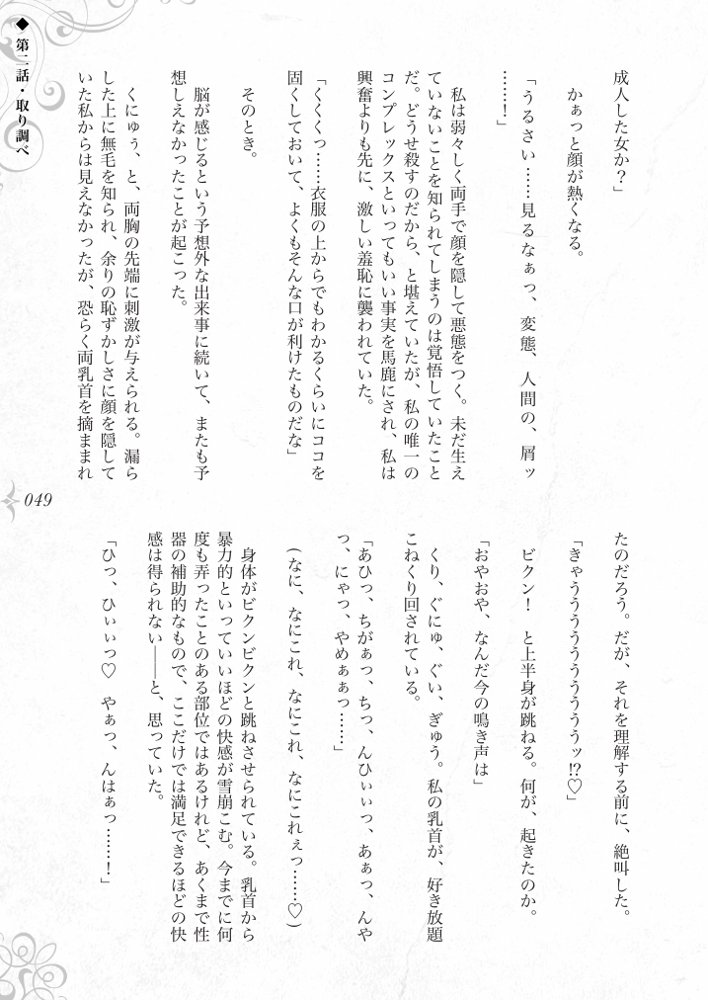 ◆ 第二話・取り調べ
成人した女か？」
かぁっと顔が熱くなる。
「うるさい……見るなぁっ、変態、人間の、屑ッ
……！」
私は弱々しく両手で顔を隠して悪態をつく。未だ生え
ていないことを知られてしまうのは覚悟していたこと
だ。どうせ殺すのだから、と堪えていたが、私の唯一の
コンプレックスといってもいい事実を馬鹿にされ、私は
興奮よりも先に、激しい羞恥に襲われていた。
「くくくっ……衣服の上からでもわかるくらいにココを
固くしておいて、よくもそんな口が利けたものだな」
そのとき。
脳が感じるという予想外な出来事に続いて、またも予
想しえなかったことが起こった。
くにゅぅ、と、両胸の先端に刺激が与えられる。漏ら
した上に無毛を知られ、余りの恥ずかしさに顔を隠して
いた私からは見えなかったが、恐らく両乳首を摘ままれ
たのだろう。だが、それを理解する前に、絶叫した。
「きゃうううううううううッ!?♡」
ビクン！　と上半身が跳ねる。何が、起きたのか。
「おやおや、なんだ今の鳴き声は」
くり、ぐにゅ、ぐい、ぎゅう。私の乳首が、好き放題
こねくり回されている。
「あひっ、ちがぁっ、ちっ、んひぃぃっ、あぁっ、んや
っ、にゃっ、やめぁぁっ……」
(なに、なにこれ、なにこれ、なにこれぇっ……♡)
身体がビクンビクンと跳ねさせられている。乳首から
暴力的といっていいほどの快感が雪崩こむ。今までに何
度も弄ったことのある部位ではあるけれど、あくまで性
器の補助的なもので、ここだけでは満足できるほどの快
感は得られない――と、思っていた。
「ひっ、ひぃぃっ♡　やぁっ、んはぁっ……！」
049